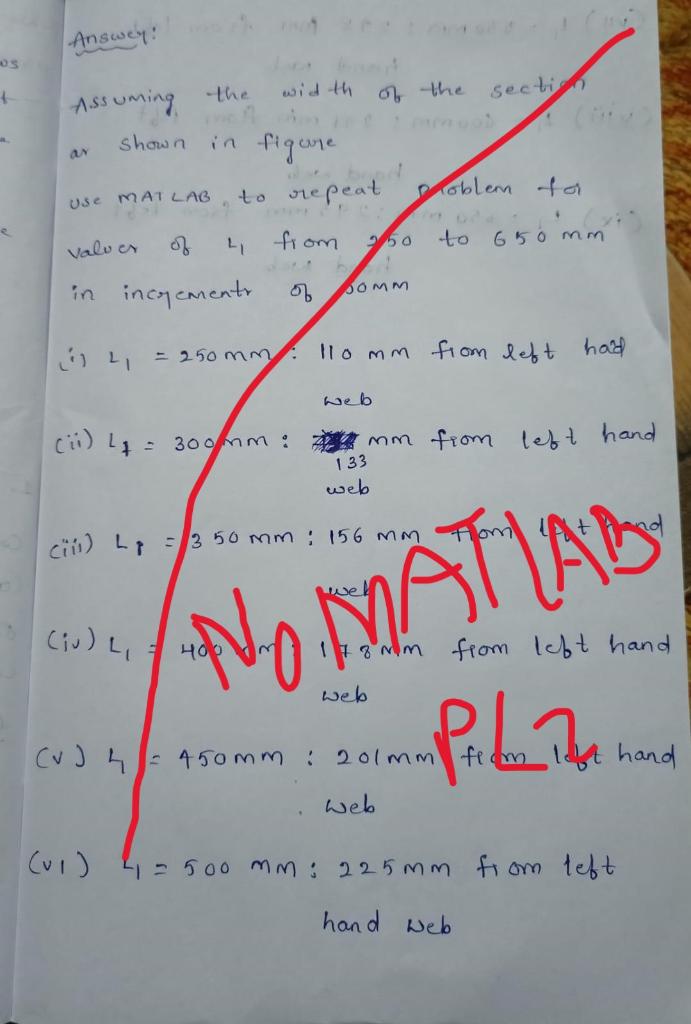 Answer:
Assuming the width of the section
as shown in figure
use MATLAB, to repeat problem for
values of L1 from 250 to 650 mm
in increments of 50mm
(i) L1 = 250 mm : 110 mm from left
web
(ii) L1 = 300 mm : mm from left hand
133
web
(iii) L1 = 350 mm : 156 mm from left hand
web
(iv) L1 = 400 mm : 178 mm from left hand
web
(v) L1 = 450 mm : 201 mm from left hand
web
(vi) L1 = 500 mm : 225 mm from left
hand web
NO MATLAB
PLZ